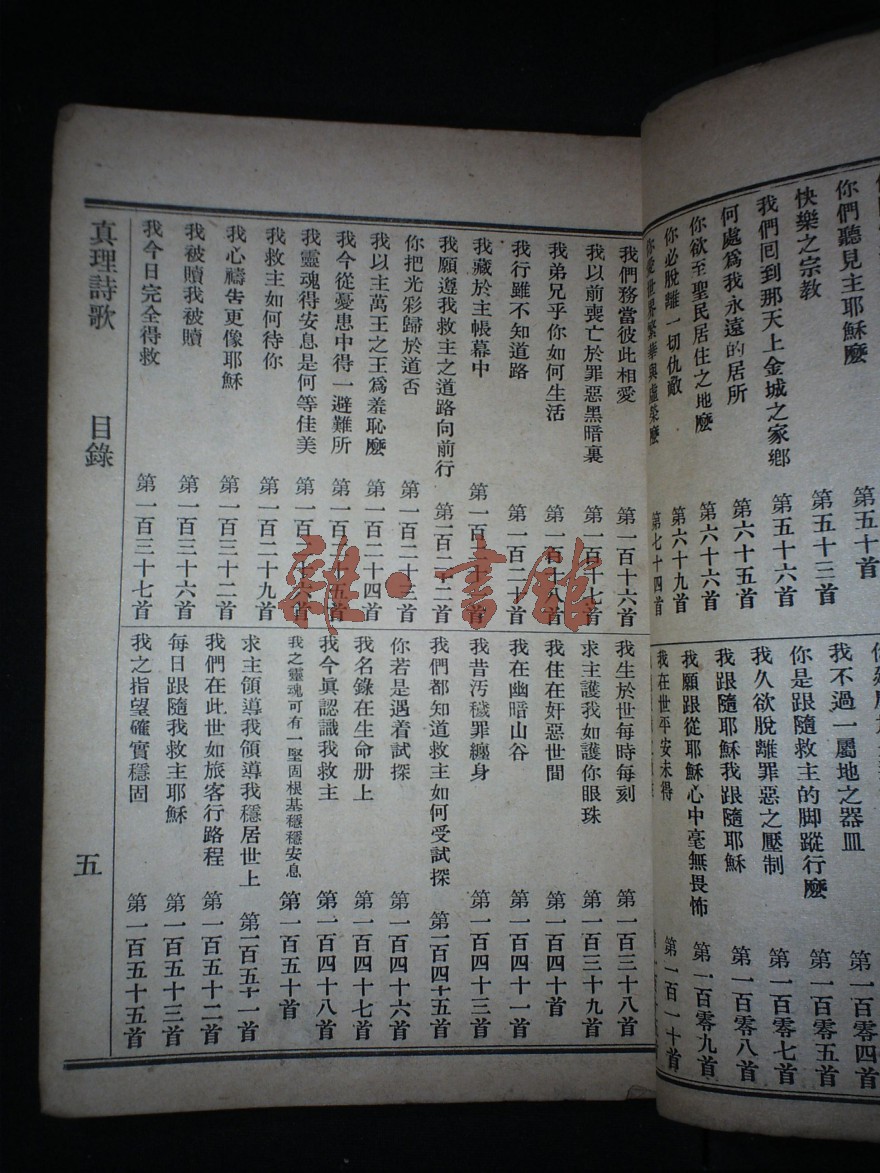 你們聽見主耶穌麼 第五十首
快樂之宗教 第五十三首
我們回到那天上金城之家鄉 第五十六首
何處為我永遠的居所 第六十五首
你欲至聖民居住之地麼 第六十六首
你必脫離一切仇敵 第六十九首
你愛世界繁華與虛榮麼 第七十四首
我不過一屬地之器皿 第一百零四首
你是跟隨救主的脚蹤行麼 第一百零五首
我久欲脫離罪惡之壓制 第一百零七首
我跟隨耶穌我跟隨耶穌 第一百零八首
我願跟從耶穌心中毫無畏怖 第一百零九首
我在世平安未得 第一百一十首
我們務當彼此相愛 第一百十六首
我以前喪亡於罪惡黑暗裏 第一百十七首
我弟兄乎你如何生活 第一百十八首
我行雖不知道路 第一百二十首
我藏於主帳幕中
我願遵我救主之道路向前行 第一百二十二首
你把光彩歸於道否 第一百二十三首
我以主萬王之王爲羞恥麼 第一百二十四首
我今從憂患中得一避難所 第一百二十五首
我靈魂得安息是何等佳美 第一百二十六首
我救主如何待你 第一百二十九首
我心禱告更像耶穌 第一百三十二首
我被贖我被贖 第一百三十六首
我今日完全得救 第一百三十七首
我生於世每時每刻 第一百三十八首
求主護我如護你眼珠 第一百三十九首
我住在奸惡世間 第一百四十首
我在幽暗山谷 第一百四十一首
我昔汚穢罪纏身 第一百四十三首
我們都知道救主如何受試探 第一百四十五首
你若是遇着試探 第一百四十六首
我名錄在生命册上 第一百四十七首
我今眞認識我救主 第一百四十八首
我之靈魂可有一堅固根基穩穩安息 第一百五十首
求主領導我領導我穩居世上 第一百五十一首
我們在此世如旅客行路程 第一百五十二首
每日跟隨我救主耶穌 第一百五十三首
我之指望確實穩固 第一百五十五首
真理詩歌 目錄 五
雜·書館